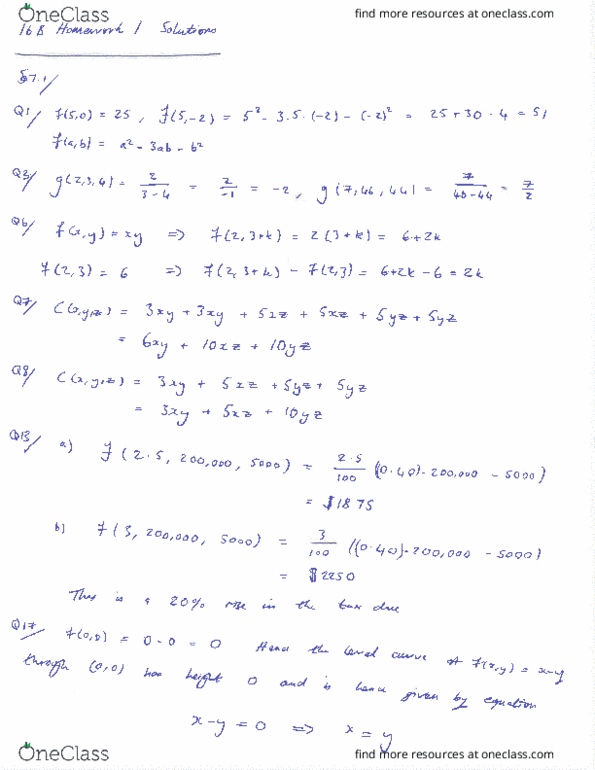 OneClass
find more resources at oneclass.com
16B Homework 1 Solutions
§7.1/
Q1/ f(5,0) = 25 , f(5,-2) = 5² - 3.5.(-2) - (-2)² = 25 + 30 - 4 = 51
f(a,b) = a² - 3ab - b²
g(2,3,4) = 2/(3-4) = 2/-1 = -2 , g(7,46,44) = 7/(46-44) = 7/2
Q6/ f(x,y) = xy => f(2,3+k) = 2(3+k) = 6+2k
f(2,3) = 6 => f(2,3+k) - f(2,3) = 6+2k-6 = 2k
Q7/ C(x,y,z) = 3xy + 3xy + 5xz + 5xz + 5yz + 5yz
= 6xy + 10xz + 10yz
Q8/ C(x,y,z) = 3xy + 5xz + 5yz + 5yz
= 3xy + 5xz + 10yz
Q13/ a) f(2.5, 200,000, 5000) = 2.5/100 ((0.40).200,000 - 5000)
= $1875
b) f(3, 200,000, 5000) = 3/100 ((0.40).200,000 - 5000)
= $2250
This is a 20% rise in the tax due
Q17/ f(0,0) = 0-0 = 0 Hence the level curve of f(x,y) = x-y
through (0,0) has height 0 and is hence given by equation
x-y = 0 => x = y
OneClass
find more resources at oneclass.com